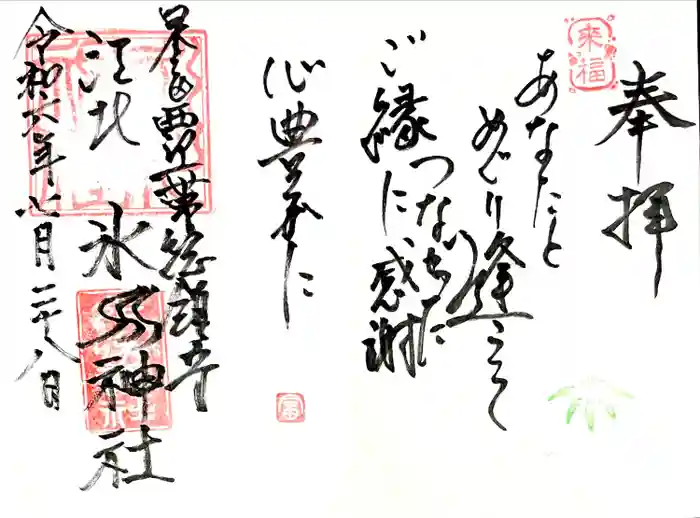 来福
奉拝
あなたと
めぐり逢えて
つながった
ご縁に感謝
心豊かに
富
江北
氷川神社
令和六年七月二十八日